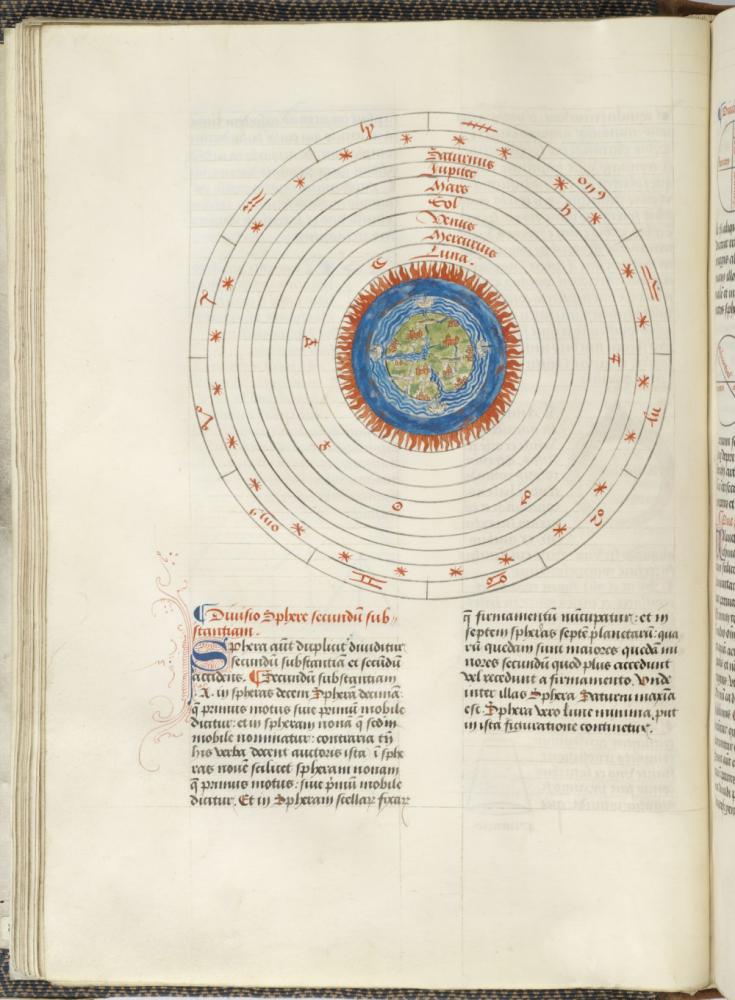 Saturnus
Jupiter
Mars
Sol
Venus
Mercurius
Luna.
Diuisio Sphere secundū sub-
stantiam.
Sphera aūt dupliciṫ diuiditur
secundū substantiā et secūdū
accidens. Secundū substantiam
.A. in spheras decem Spherā decimā
q̄ primus motus siue primū mobile
dicitur: et in spheram nonā q̄ scd̄m
mobile nominatur: contraria tn̄
his verba docent auctoris ista ī sphe
ras nouē scilicet spheram nonam
q̄ primus motus: siue p̄mū mobile
dicitur. Et in Spheram stellaꝝ fixaꝝ
q̄ firmamentū nūcupatur: et in
septem spheras septē planetarū: qua
rū quedam sunt maiores quedā mi
nores secundū quod plus accedunt
vel recedunt a firmamento. Vnde
inter illas Sphera Saturni maxīa
est. Sphera vero lune minima, put
in ista figuratione continetur.